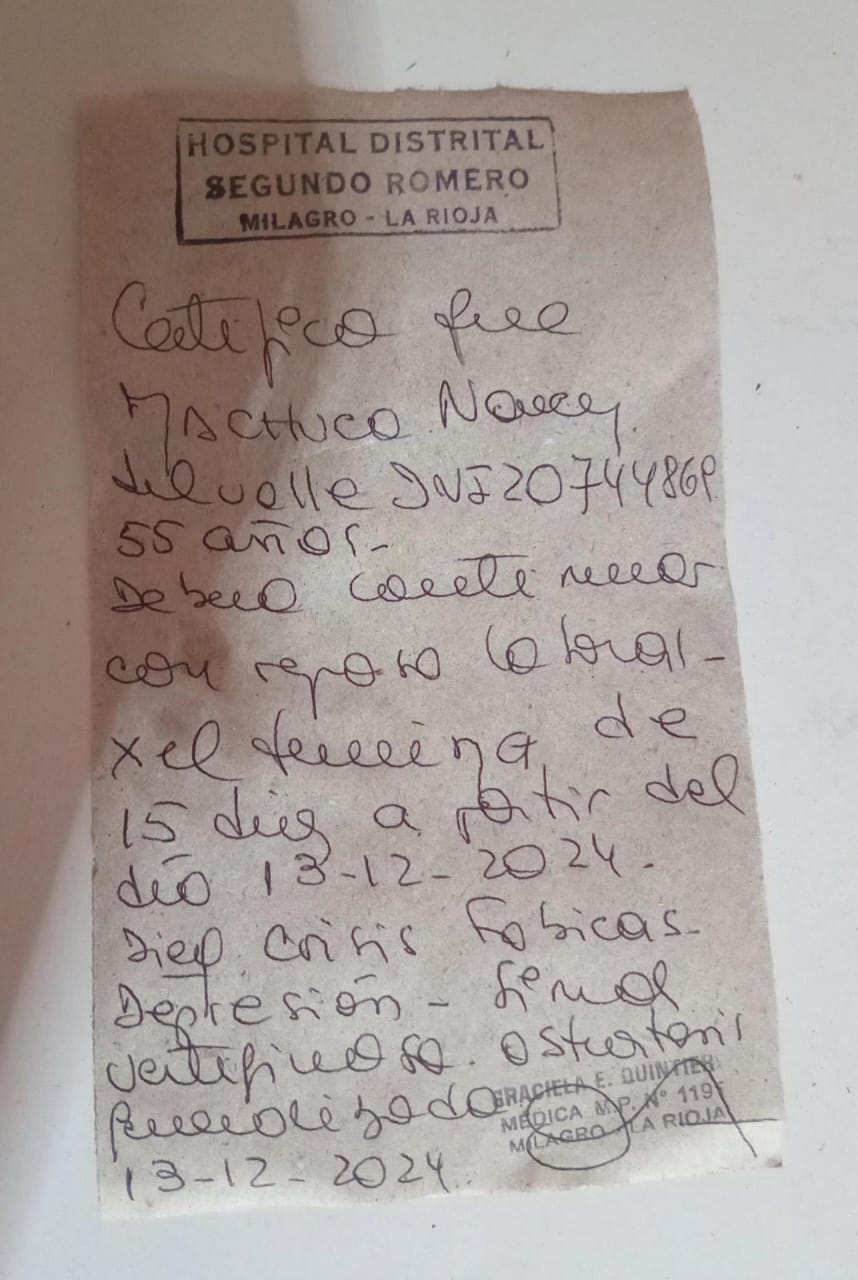 HOSPITAL DISTRITAL
SEGUNDO ROMERO
MILAGRO - LA RIOJA
Certifico que
Machuca Nancy
del valle DNI 20744869
55 años.-
Debera continuar
con reposo laboral-
x el termino de
15 dias a partir del
día 13-12-2024.
Diag Crisis Fobicas-
Depresión -
vertiginoso.
generalizada
GRACIELA E. QUINTIER
MEDICA M.P. N° 119
MILAGRO - LA RIOJA
13-12-2024.